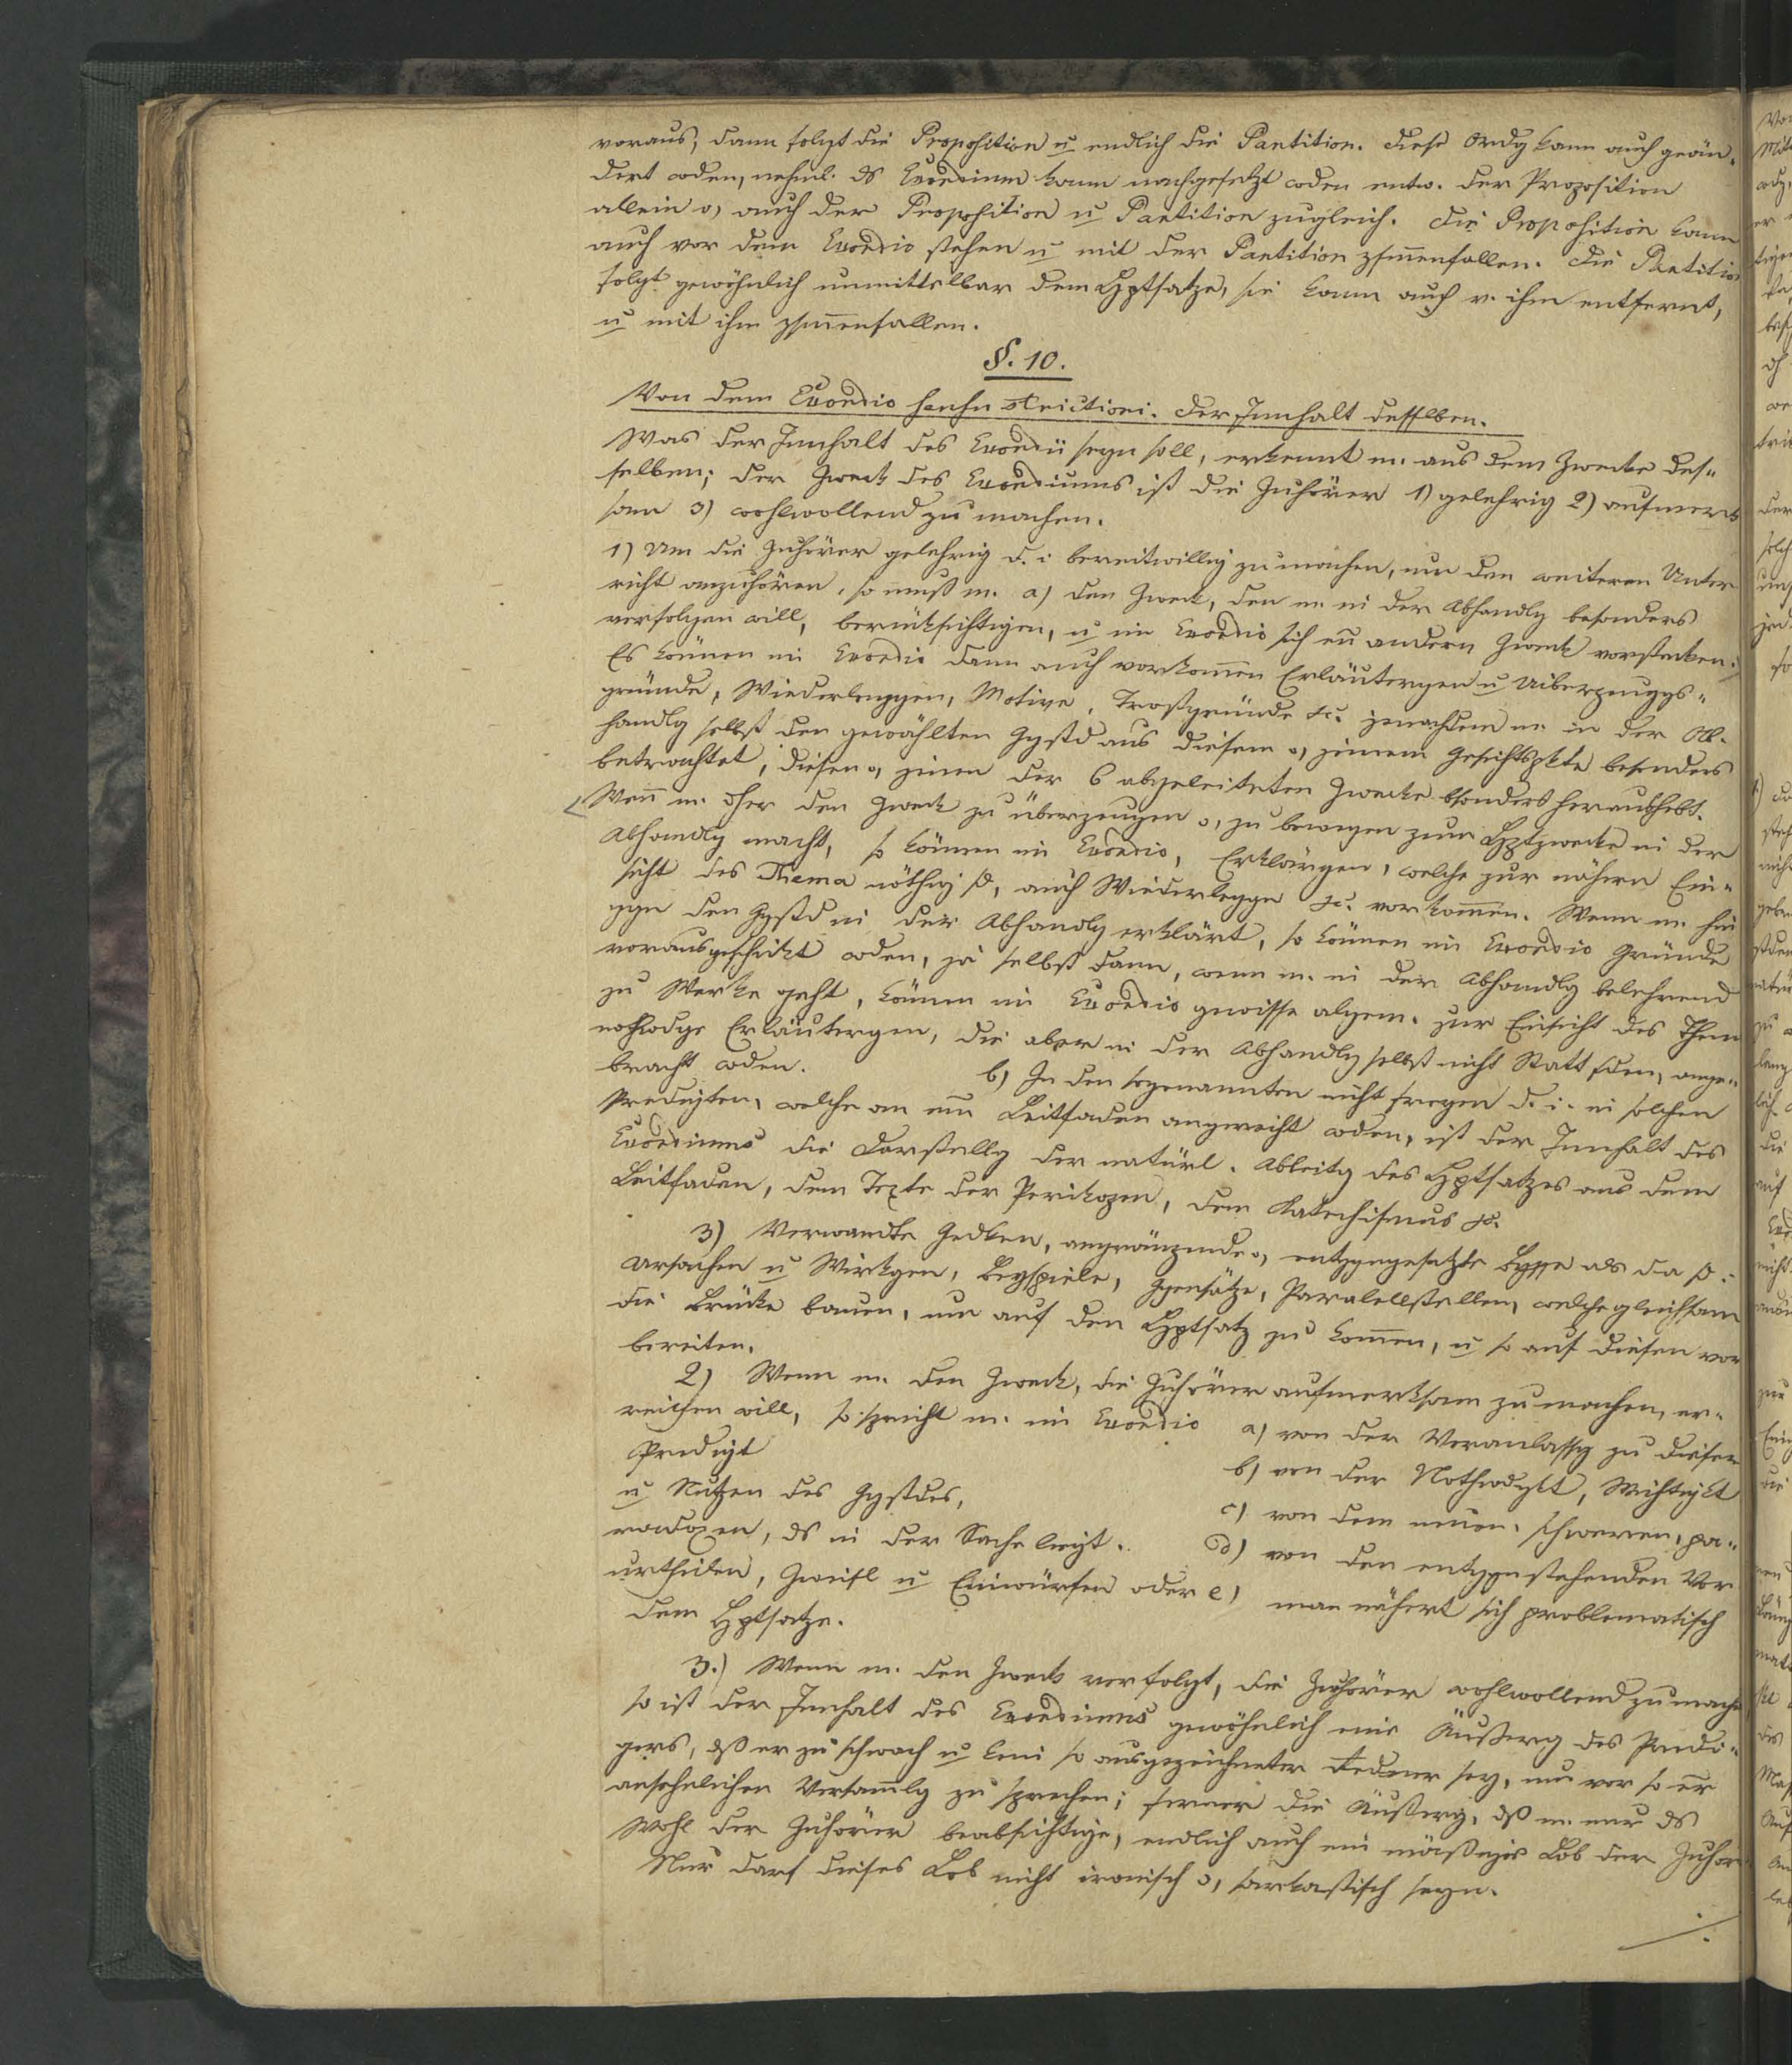 voraus, dann folgt die Proposition u endlich die Partition. diese Ordg kann auch geän-
dert wden, nehml. ds Exordium kann nachgesetzt wden entw. der Proposition
allein o, auch der Proposition u Partition zugleich. die Proposition kann
auch vor dem Exordio stehen u mit der Partition zsmenfallen. die Partition
folgt gewöhnlich unmittelbar dem Hptsatze, sie kann auch v. ihm entfernt,
u mit ihm zsmenfallen.
§. 10.
Von dem Exordio sensu strictiori. der Innhalt desselben.
Was der Innhalt des Exordii seyn soll, erkennt m. aus dem Zwecke des-
selben; der Zweck des Exordiums ist die Zuhörer 1) gelehrig 2) aufmerk
sam 3) wohlwollend zu machen.
1) Um die Zuhörer gelehrig d. i bereitwillig zu machen, um den weiteren Unter
richt anzuhören, so muß m. a) den Zweck, den m. in der Abhandlg besonders
verfolgen will, berücksichtigen, u im Exordio sich en andern Zweck vorstecken.
Es können im Exordio dann auch vorkommen Erläutergen u Uiberzeuggs-
gründe, Wiederleggen, Motive, Trostgründe &c. jenachdem m. in der Ab-
handlg selbst den gewählten Ggstd aus diesem o, jenem Gesichtspkte besonders
betrachtet, diesen o, jenen der 6 abgeleiteten Zwecke bsonders heraushebt.
Wenn m. dher den Zweck zu überzeugen o, zu bewegen zum Hptzwecke in der
Abhandlg macht, so können im Exordio, Erklärgen, welche zur nähern Ein-
sicht des Thema nöthig sd, auch Wiederleggen &c. vorkommen. Wenn m. hin
ggn den Ggstd in der Abhandlg erklärt, so können im Exordio Gründe
vorausgeschickt wden, ja selbst dann, wenn m. in der Abhandlg belehrend
zu Werke geht, können im Exordio gewisse algem. zur Einsicht des Them
nothwdge Erläutergen, die aber in der Abhandlg selbst nicht Statt fden, ange-
bracht wden. b) In den sogenannten nicht freyen d. i. in solchen
Predigten, welche an een Leitfaden angereicht wden, ist der Innhalt des
Exordiums die Darstellg der natürl. Ableitg des Hptsatzes aus dem
Leitfaden, dem Texte der Perikopen, dem Katechismus &c.
3) Verwandte Gedken, angränzende o, entggngesetzte Bgffe als da sd:
Ursachen u Wirkgen, Beyspiele, Ggensätze, Paralellstellen, welche gleichsam
die Brücke bauen, um auf den Hptsatz zu kommen, u so auf diesen vor
bereiten.
2) Wenn m. den Zweck, die Zuhörer aufmerksam zu machen, er-
reichen will, so spricht m. im Exordio a) von der Veranlassg zu dieser
Predigt b) von der Nothwdgkt, Wichtigkt
u Nutzen des Ggstdes, c) von dem neuen, schweren, pa-
radoxen, ds in der Sache liegt. d) von den entggnstehenden Vor
urtheilen, Zweifl u Einwürfen oder e) man nähert sich problematisch
dem Hptsatze.
3.) Wenn m. den Zweck verfolgt, die Zuhörer wohlwollend zu mache
so ist der Innhalt des Exordiums gewöhnlich eine Äußerg des Predi-
gers, dß er zu schwach u kein so ausgezeichneter Redner sey, um vor so er
ansehnlichen Versamlg zu sprechen; ferner die Äußerg, dß m. nur ds
Wohl der Zuhörer beabsichtige, endlich auch ein mäßiges Lob der Zuhör
Nur darf dieses Lob nicht ironisch o, sarkastisch seyn.